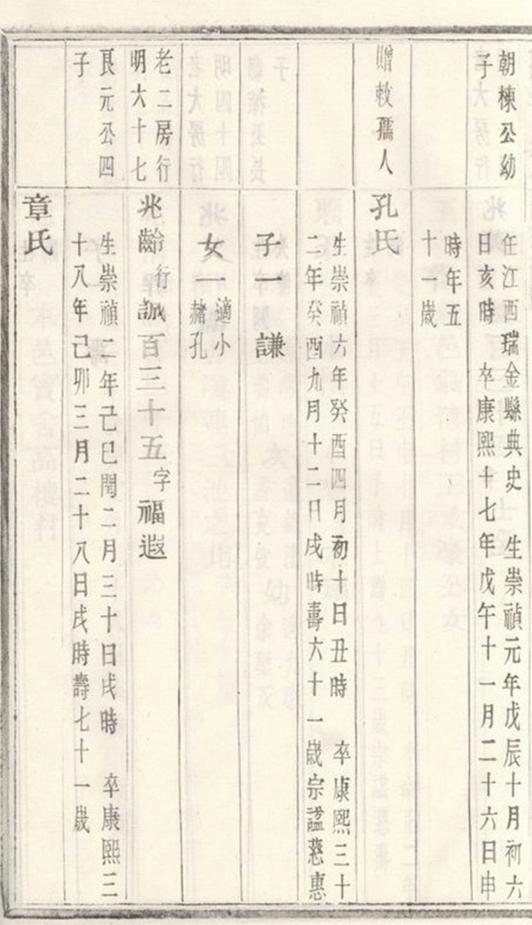 朝棟公幼
子
任江西瑞金縣典史 生崇禎元年戊辰十月初六
日亥時 卒康熙十七年戊午十一月二十六日申
時年五
十一歲
贈敕孺人
孔氏
生崇禎六年癸酉四月初十日丑時 卒康熙三十
二年癸酉九月十二日戌時壽六十一歲宗諡慈惠
子一 謙
女一
適小
赭孔
老二房行
明六十七
良元公四
子
兆齡行誠百三十五字福遐
生崇禎二年己巳閏二月三十日戌時 卒康熙三
十八年己卯三月二十八日戌時壽七十一歲
章氏